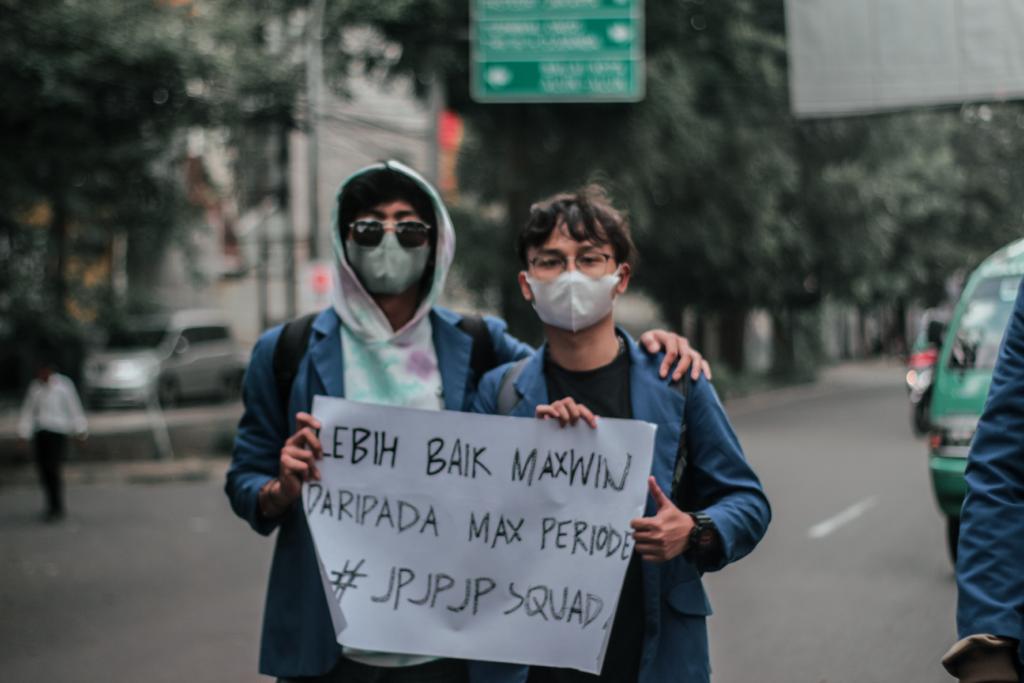 LEBIH BAIK MAXWIN
DARIPADA MAX PERIODE
# JPJPJP SQUAD